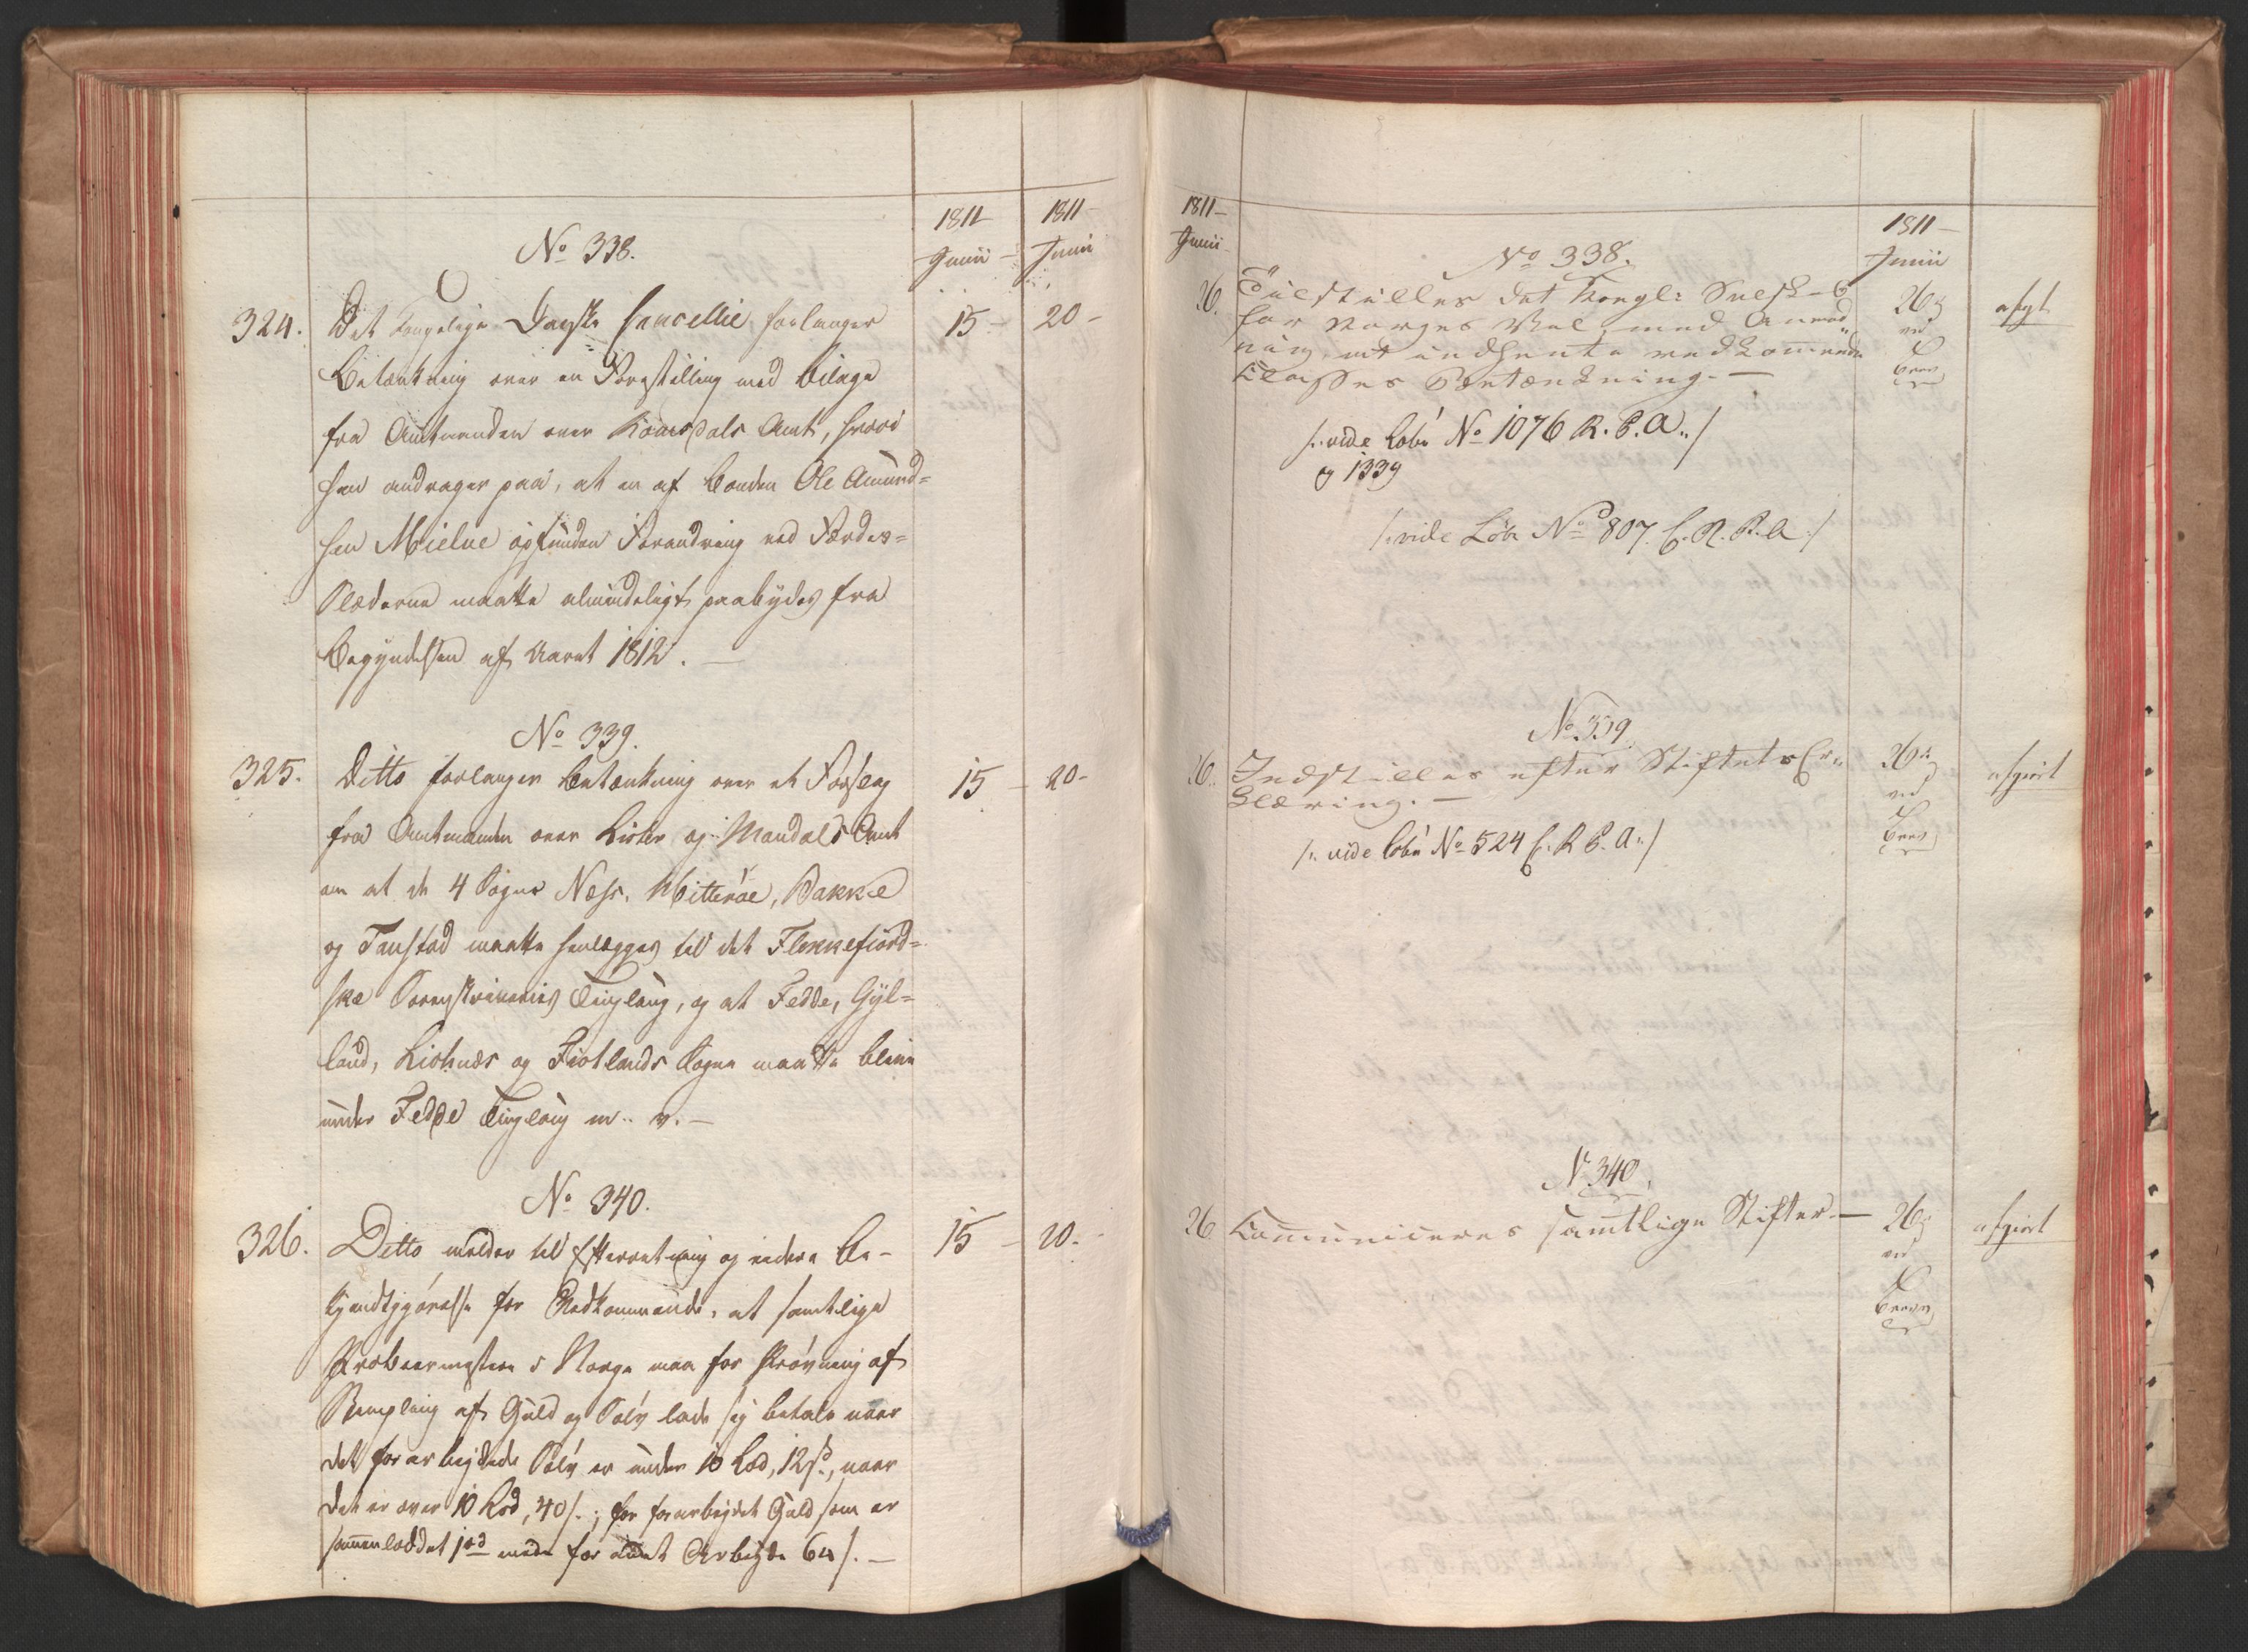 1811
Junii
1811
Junii
No 338.
324.
Det Kongelige Danske Cancellie forlanger
15.
20
Betænkning over en Forestilling med bilage
fra Amtmanden over Romsdals Amt, hvori
han andrager paa, at en af bonden Ole Amund=
sen Mielve opfunden Forandring ved Færdes=
Slæderne maatte almindeligt paabydes fra
Begyndelsen af Aaret 1812.
No 339.
325.
Ditto forlanger Betænkning over et Forslag
15
20
fra Amtmanden over Lister og Mandals Amt
om at de 4 Sogne Næss, Hitterøe, Bakke
og Tanstad maatte henlægges til det Flekkefiord=
ske Sorenskriveries Tinglaug, og at Fedde, Gyl=
land, Liohnæs og Fiotlands Sogne maatte blive
under Fedde Tinglaug m. v.
No 340.
326.
Ditto melder til Efterretning og videre Be-
15
20.
kjendtgjørelse for Vedkommende, at samtlige
Probeermestere i Norge maa for Prøvning af
Stempling af Guld og Sølv lade sig betale naar
det forarbeydede Sølv er under 10 Lod, 12 s., naar
det er over 10 Lod, 40 s.; for forarbeydet Guld som er
sammenloddet med for andet Arbeyde 64 s.
1811
Junii
1811
Junii
No 338.
26.
Tilstilles det Kongl: Selskab
26
afgt
for Norges Vel, med Anmod
ved
ning, at indhente vedkommende
Classes Betænkning.
Brev
/: vide Løbe No 1076 R. P. A. :/
og 1339
/: vide Løbe No 807. C. R. P. A :/
No 339.
26.
Indstilles efter Stiftets Er=
26
afgiort
klæring.
ved
Brev
/: vide Løbe No 524 C. R. P. A. :/
N. 340.
26
Communiceres samtlige Stifter.
26
afgiort
ved
Breve